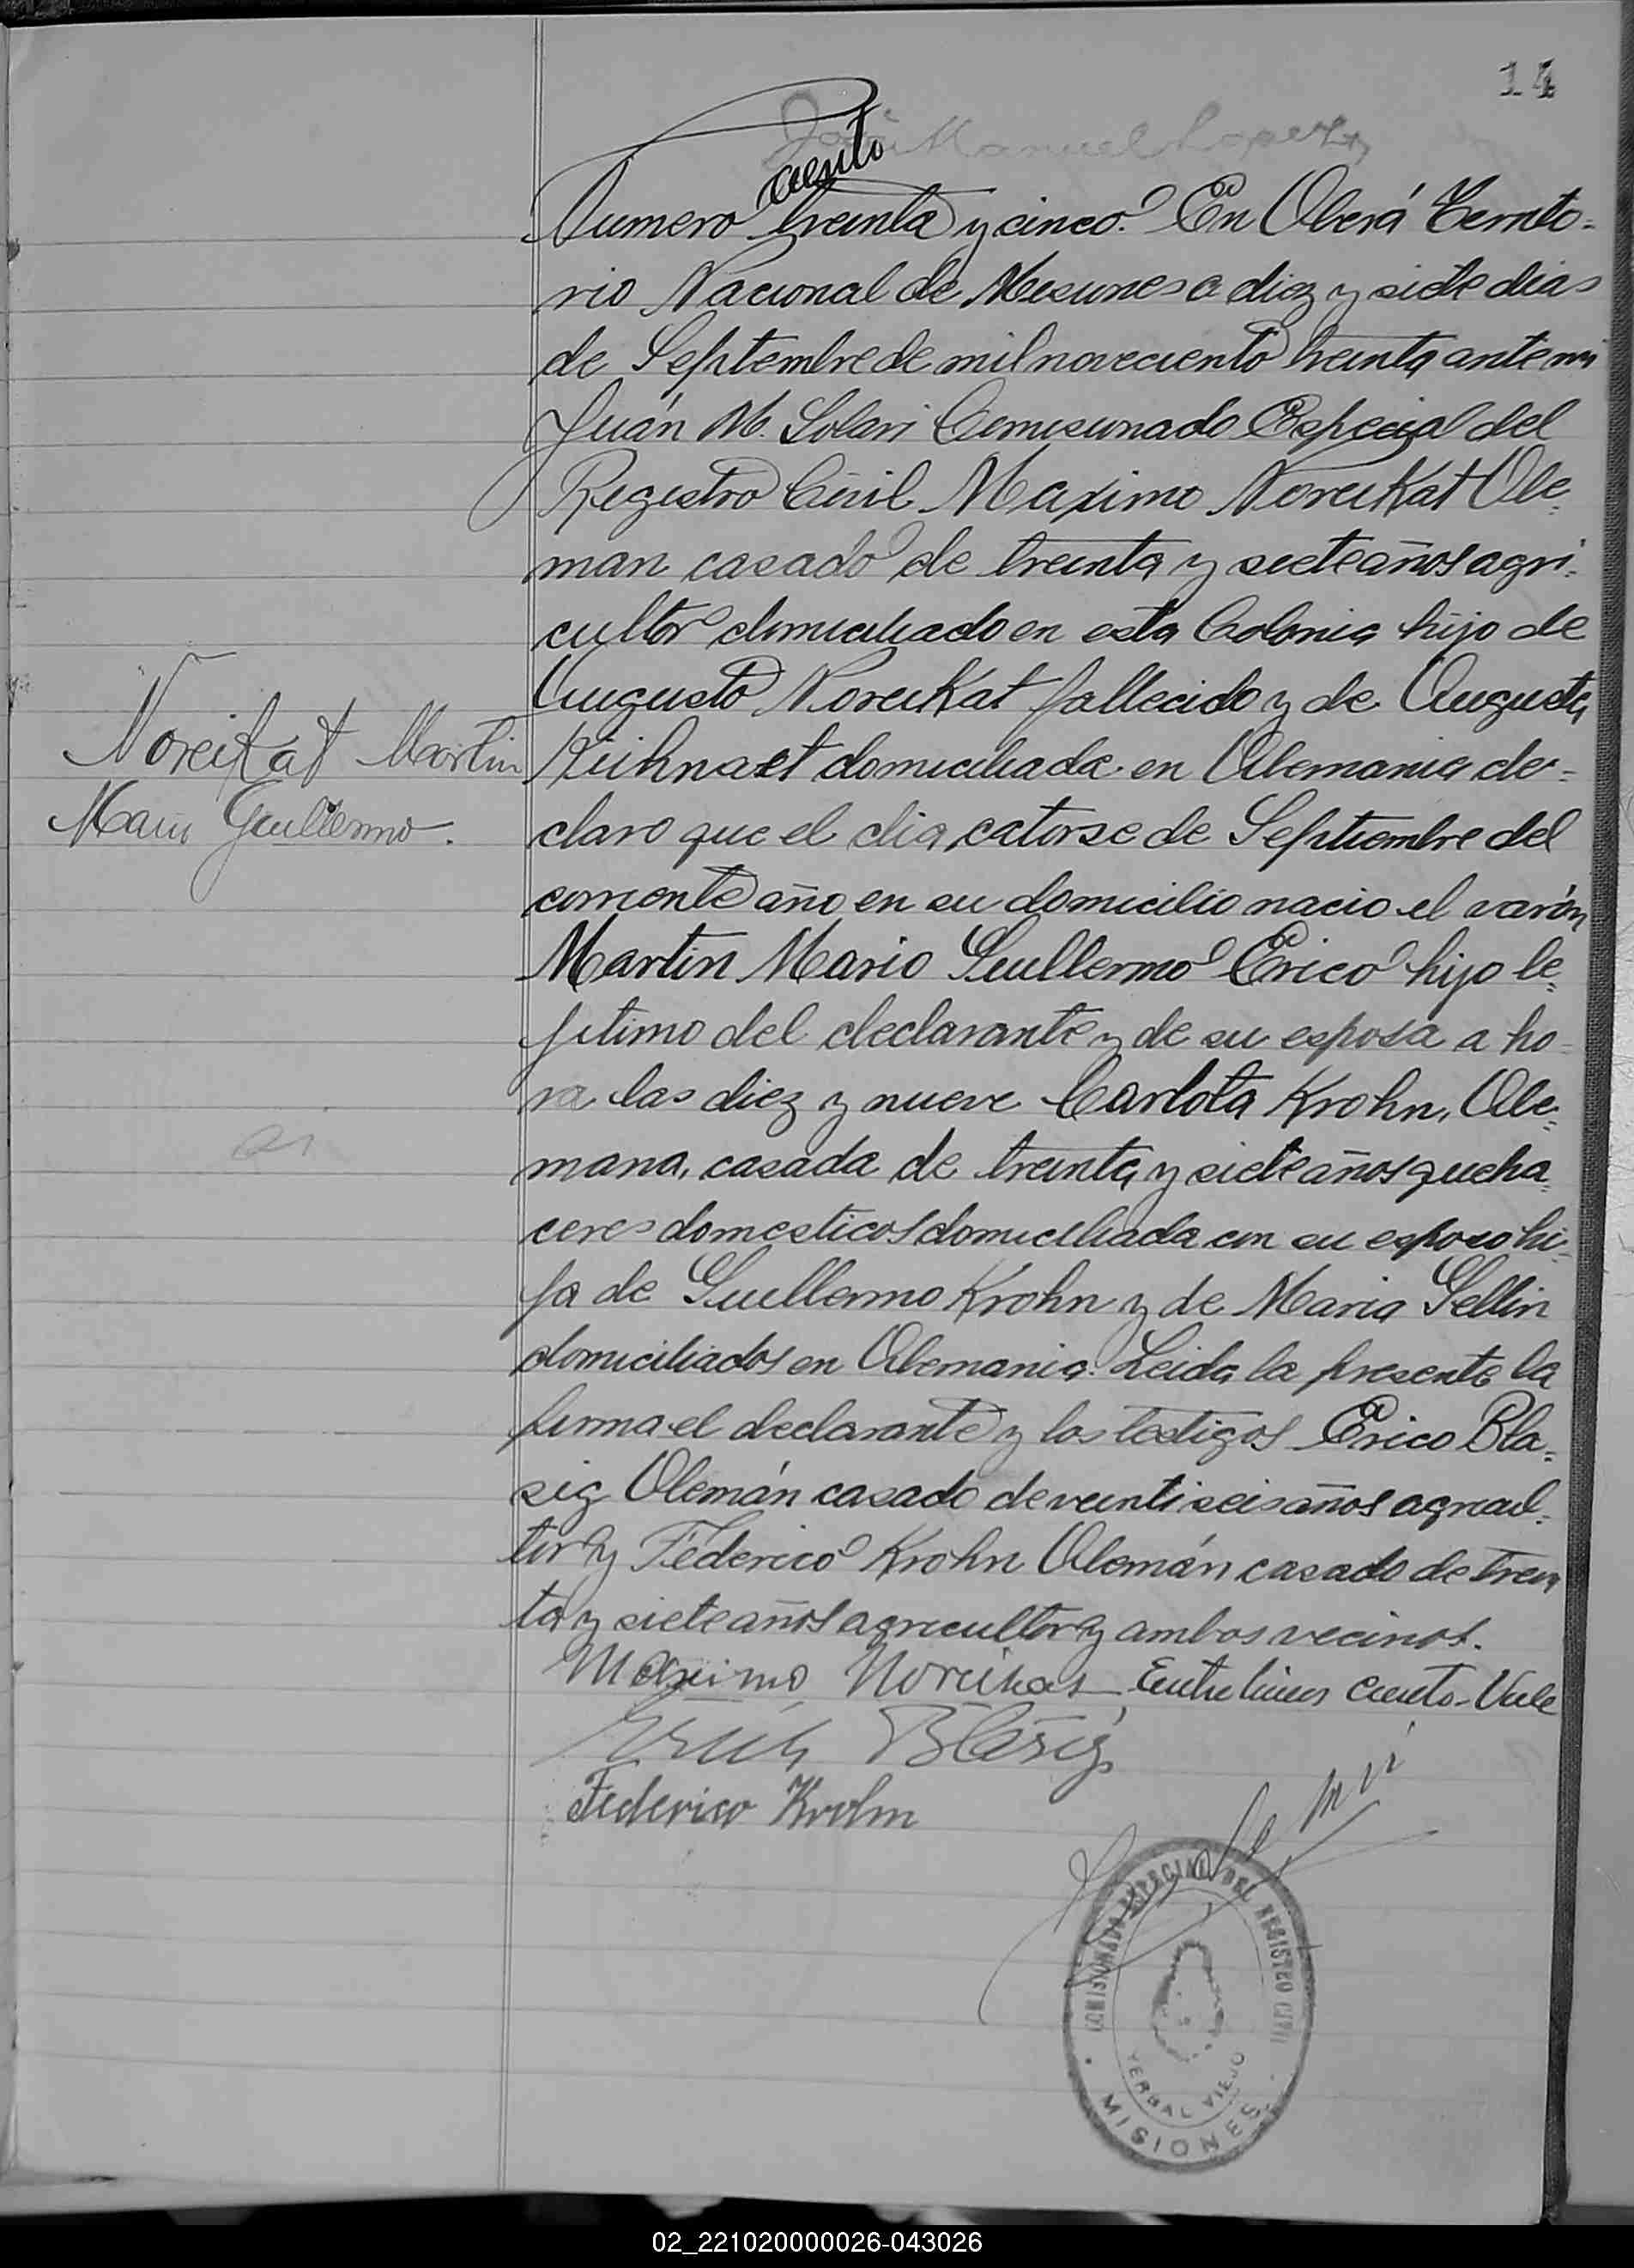 14
José Manuel Lopez
ciento
Numero treinta y cinco. En Oberá Territo=
rio Nacional de Misiones a diez y siete dias
de Septiembre de mil noveciento treinta ante mi
Juán M. Solari Comisionado Especial del
Registro Civil Maximo Noreikat Ale=
man casado de treinta y siete años agri=
cultor domiciliado en esta Colonia hijo de
Augusto Noreikat fallecido y de Augusta
Noreikat Martin
Kuihnast domiciliada en Alemania de=
Mario Guillermo.
claro que el dia catorse de Septiembre del
corriente año en su domicilio nacio el varón
Martin Mario Guillermo Erico hijo le=
jitimo del declarante y de su esposa a ho=
ra las diez y nueve Carlota Krohn, Ale=
mana, casada de treinta y siete años queha=
ceres domesticos domiciliada con su esposo hi=
ja de Guillermo Krohn y de Maria Sellin
domiciliados en Alemania. Leida la presente la
firma el declarante y los testigos Erico Bla=
sig Alemán casado de veinti seis años agricul=
tor y Federico Krohn Alemán casado de trein
ta y siete años agricultor y ambos vecinos.
Maximo Noreikat Entre lineas ciento-Vale
Erich Blasig
Federico Krohn
COMISIONADO ESPECIAL DEL REGISTRO CIVIL
YERBAL VIEJO
MISIONES
02_221020000026-043026